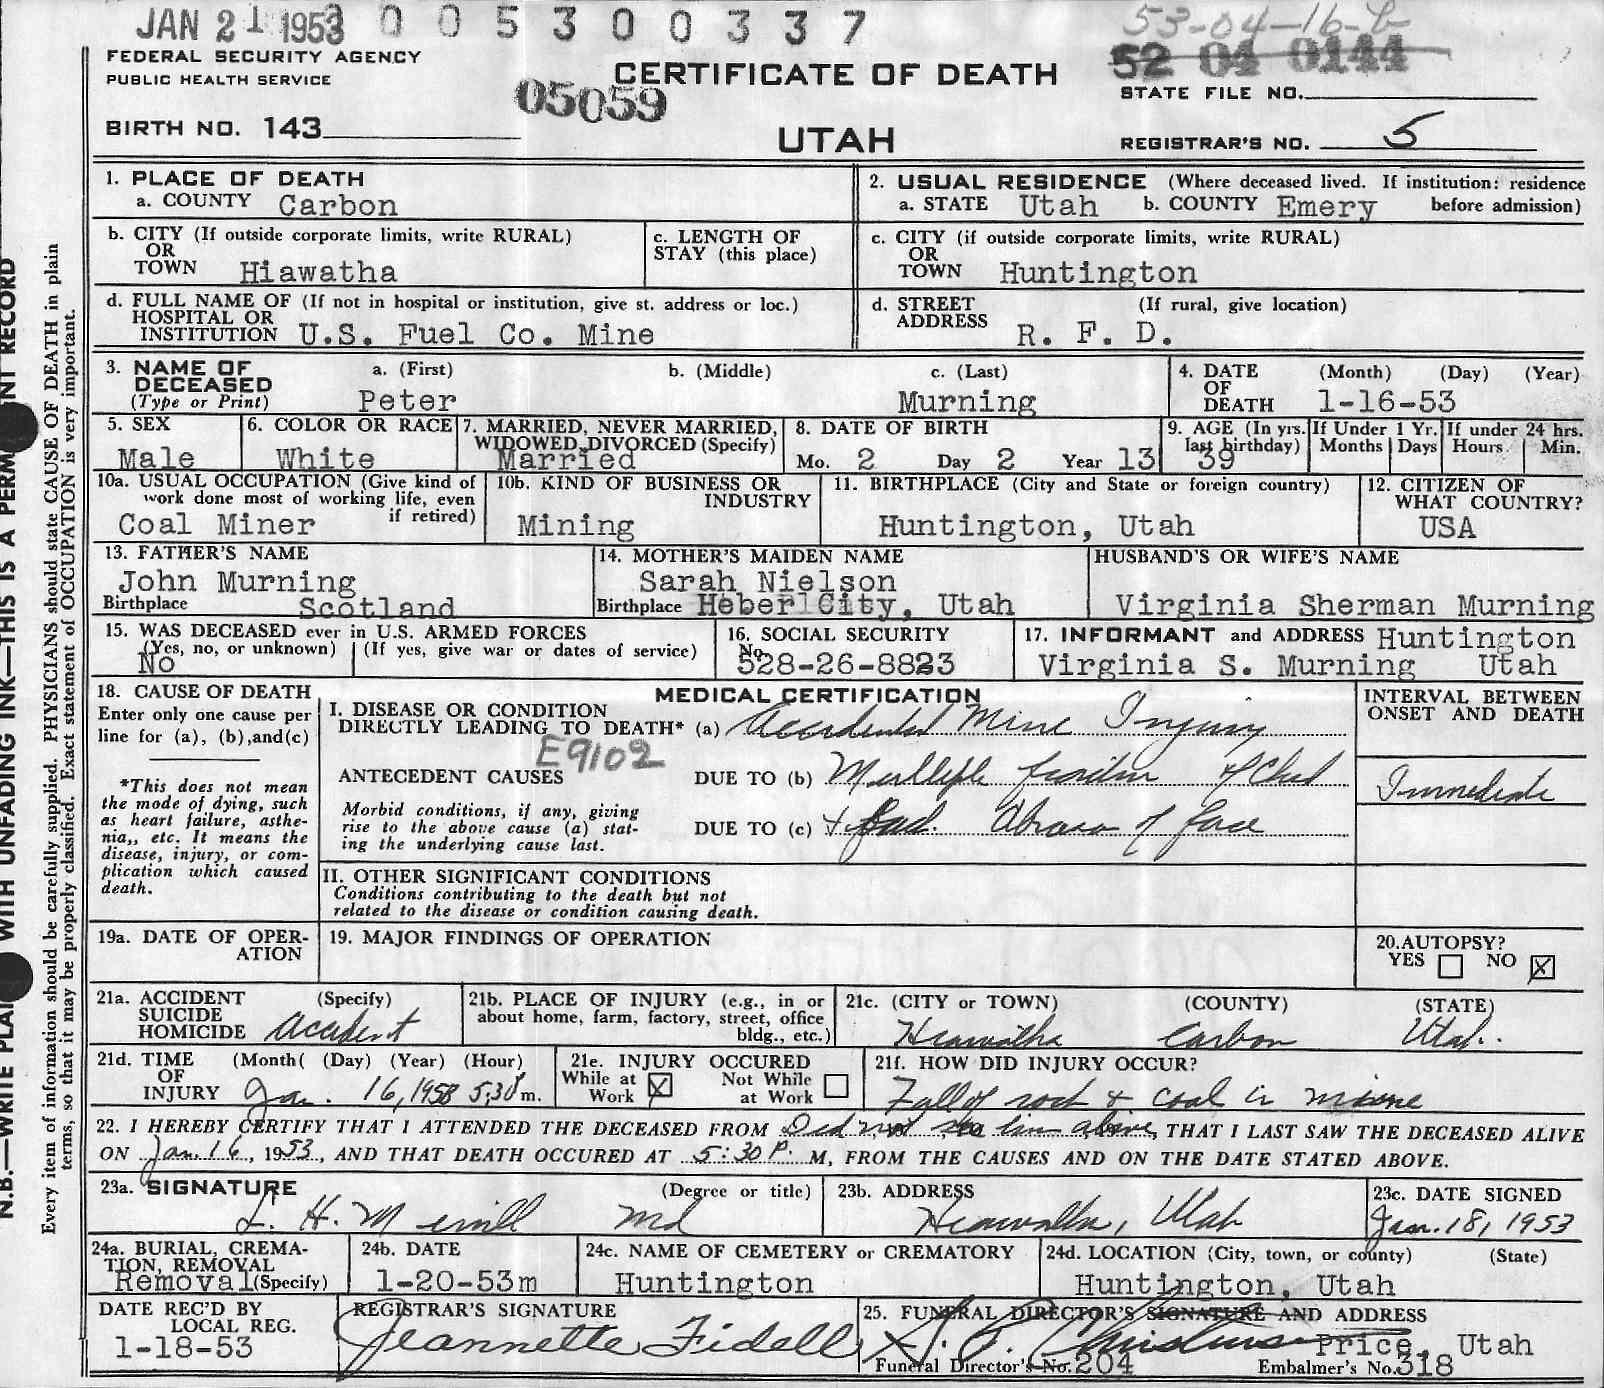 JAN 21 1953 0 0 5 3 0 0 3 3 7
53-04-16-
52 04 0144
FEDERAL SECURITY AGENCY
PUBLIC HEALTH SERVICE
CERTIFICATE OF DEATH
05059
STATE FILE NO.
BIRTH NO. 143
UTAH
REGISTRAR'S NO. 5
1. PLACE OF DEATH
a. COUNTY Carbon
2. USUAL RESIDENCE (Where deceased lived. If institution: residence
a. STATE Utah b. COUNTY Emery before admission)
b. CITY (If outside corporate limits, write RURAL)
OR
TOWN Hiawatha
c. LENGTH OF
STAY (this place)
c. CITY (if outside corporate limits, write RURAL)
OR
TOWN Huntington
d. FULL NAME OF (If not in hospital or institution, give st. address or loc.)
HOSPITAL OR
INSTITUTION U.S. Fuel Co. Mine
d. STREET (If rural, give location)
ADDRESS R. F. D.
3. NAME OF a. (First) b. (Middle) c. (Last)
DECEASED
(Type or Print) Peter Murning
4. DATE (Month) (Day) (Year)
OF
DEATH 1-16-53
5. SEX
Male
6. COLOR OR RACE
White
7. MARRIED, NEVER MARRIED,
WIDOWED, DIVORCED (Specify)
Married
8. DATE OF BIRTH
Mo. 2 Day 2 Year 13
9. AGE (In yrs.
last birthday)
39
If Under 1 Yr.
Months Days
If under 24 hrs.
Hours Min.
10a. USUAL OCCUPATION (Give kind of
work done most of working life, even
if retired)
Coal Miner
10b. KIND OF BUSINESS OR
INDUSTRY
Mining
11. BIRTHPLACE (City and State or foreign country)
Huntington, Utah
12. CITIZEN OF
WHAT COUNTRY?
USA
13. FATHER'S NAME
John Murning
Birthplace Scotland
14. MOTHER'S MAIDEN NAME
Sarah Nielson
Birthplace Heber City, Utah
HUSBAND'S OR WIFE'S NAME
Virginia Sherman Murning
15. WAS DECEASED ever in U.S. ARMED FORCES
(Yes, no, or unknown) (If yes, give war or dates of service)
No
16. SOCIAL SECURITY
No.
528-26-8823
17. INFORMANT and ADDRESS Huntington
Virginia S. Murning Utah
18. CAUSE OF DEATH
Enter only one cause per
line for (a), (b), and (c)
*This does not mean
the mode of dying, such
as heart failure, asthe-
nia,, etc. It means the
disease, injury, or com-
plication which caused
death.
MEDICAL CERTIFICATION
I. DISEASE OR CONDITION
DIRECTLY LEADING TO DEATH* (a) Accidental Mine Injury
E9102
ANTECEDENT CAUSES DUE TO (b) Multiple of Chest
Morbid conditions, if any, giving
rise to the above cause (a) stat-
ing the underlying cause last.
DUE TO (c) & of face
INTERVAL BETWEEN
ONSET AND DEATH
Immediate
II. OTHER SIGNIFICANT CONDITIONS
Conditions contributing to the death but not
related to the disease or condition causing death.
19a. DATE OF OPER-
ATION
19. MAJOR FINDINGS OF OPERATION
20. AUTOPSY?
YES NO X
21a. ACCIDENT (Specify)
SUICIDE
HOMICIDE Accident
21b. PLACE OF INJURY (e.g., in or
about home, farm, factory, street, office
bldg., etc.)
21c. (CITY or TOWN) (COUNTY) (STATE)
Hiawatha Carbon Utah.
21d. TIME (Month( (Day) (Year) (Hour)
OF
INJURY Jan. 16, 1953 5:30 m.
21e. INJURY OCCURED
While at Work X Not While at Work
21f. HOW DID INJURY OCCUR?
Fall of rock & coal in mine
22. I HEREBY CERTIFY THAT I ATTENDED THE DECEASED FROM Did not see him alive, THAT I LAST SAW THE DECEASED ALIVE
ON Jan. 16, 1953, AND THAT DEATH OCCURED AT 5:30 P. M, FROM THE CAUSES AND ON THE DATE STATED ABOVE.
23a. SIGNATURE (Degree or title)
L. H. Merrill MD
23b. ADDRESS
Hiawatha, Utah
23c. DATE SIGNED
Jan. 18, 1953
24a. BURIAL, CREMA-
TION, REMOVAL
Removal (Specify)
24b. DATE
1-20-53m
24c. NAME OF CEMETERY or CREMATORY
Huntington
24d. LOCATION (City, town, or county) (State)
Huntington, Utah
DATE REC'D BY
LOCAL REG.
1-18-53
REGISTRAR'S SIGNATURE
Jeannette Fidell
25. FUNERAL DIRECTOR'S SIGNATURE AND ADDRESS
Price, Utah
Funeral Director's No. 204 Embalmer's No. 318
N.B.—WRITE PLAI WITH UNFADING INK—THIS IS A PERM NT RECORD
Every item of information should be carefully supplied. PHYSICIANS should state CAUSE OF DEATH in plain
terms, so that it may be properly classified. Exact statement of OCCUPATION is very important.